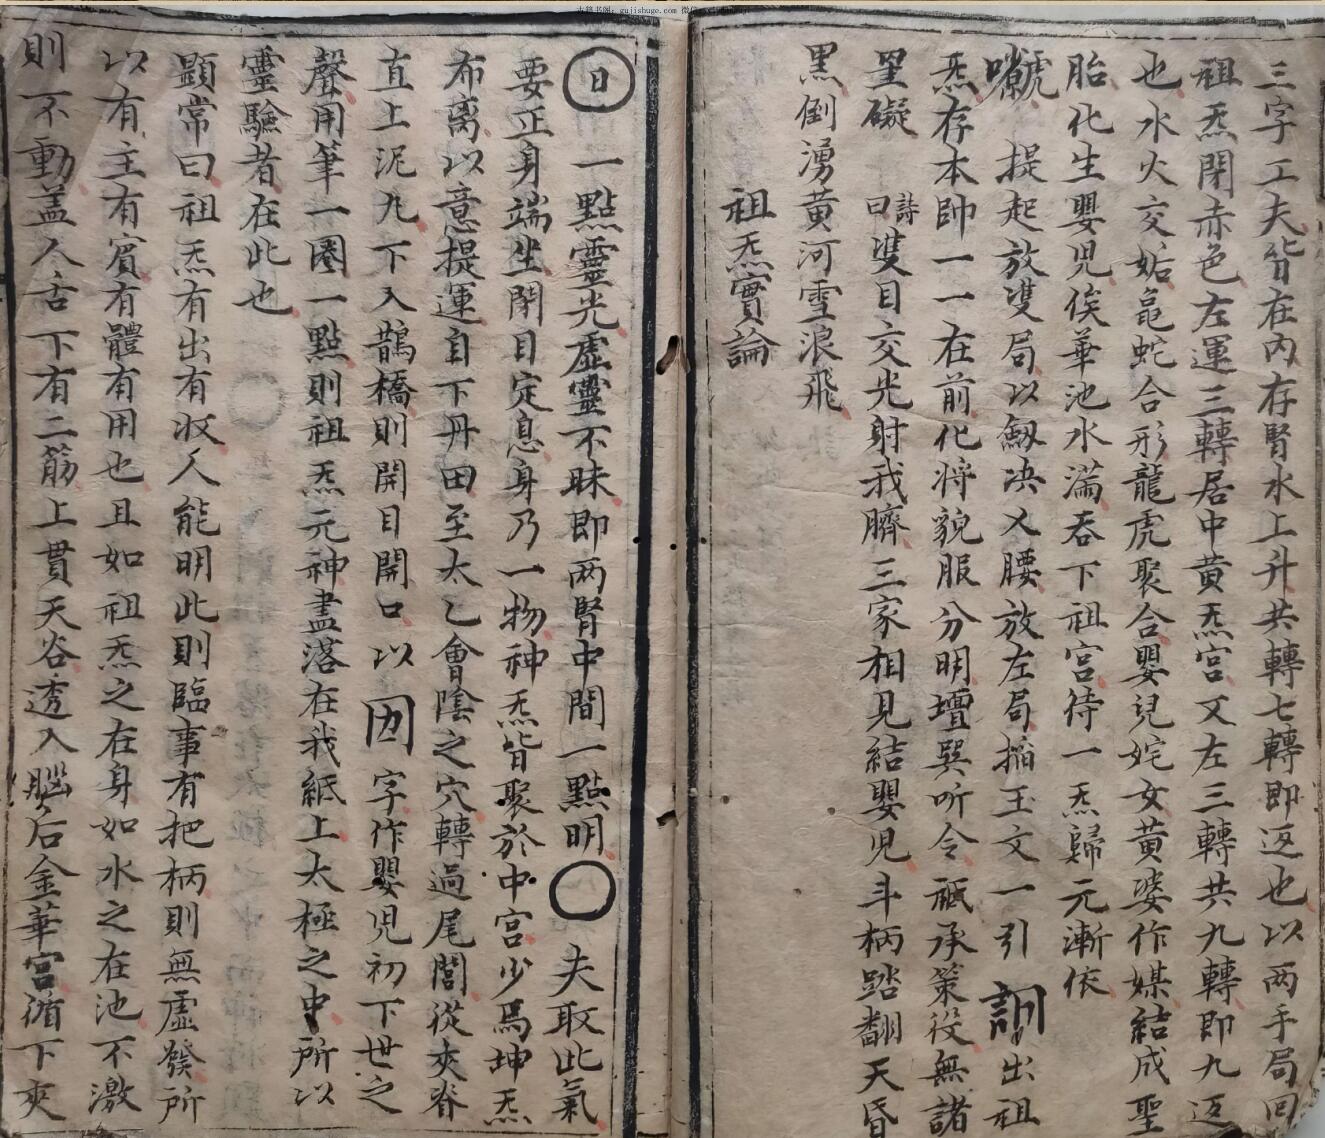 古籍书阁：gujishuge.com 微信
三字工夫皆在內存腎水上升共轉七轉即返也以两手局回
祖炁閉赤色左運三轉居中黃炁宮又左三轉共九轉即九返
也水火交姤龜蛇合形龍虎聚合嬰兒姹女黃婆作媒結成聖
胎化生嬰児俟華池水滿吞下祖宮待一炁歸元漸依
提起放雙局以劔决入腰放左局掐玉文一引 出祖
炁存本帥一一在前化将貌服分明壇巽听令祗承策役無諸
罣礙 詩曰 雙目交光射我臍三家相見結嬰児斗柄踏翻天昏
黑倒湧黃河雪浪飛
祖炁實論
日 一點靈光虛靈不昧即两腎中間一點明〇夫取此氣
要正身端坐閉目定息身乃一物神炁皆聚於中宮少焉坤炁
布离以意提運自下丹田至太乙會陰之穴轉過尾閭從夾脊
直上泥丸下入鵲橋則開目開口以囡字作嬰児初下世之
聲用筆一圈一點則祖炁元神盡落在我紙上太極之中所以
靈驗者在此也
顕常曰祖炁有出有收人能明此則臨事有把柄則無虛發所
以有主有賔有體有用也且如祖炁之在身如水之在池不激
則不動盖人舌下有二筋上貫天谷透入腦后金華宮循下夾